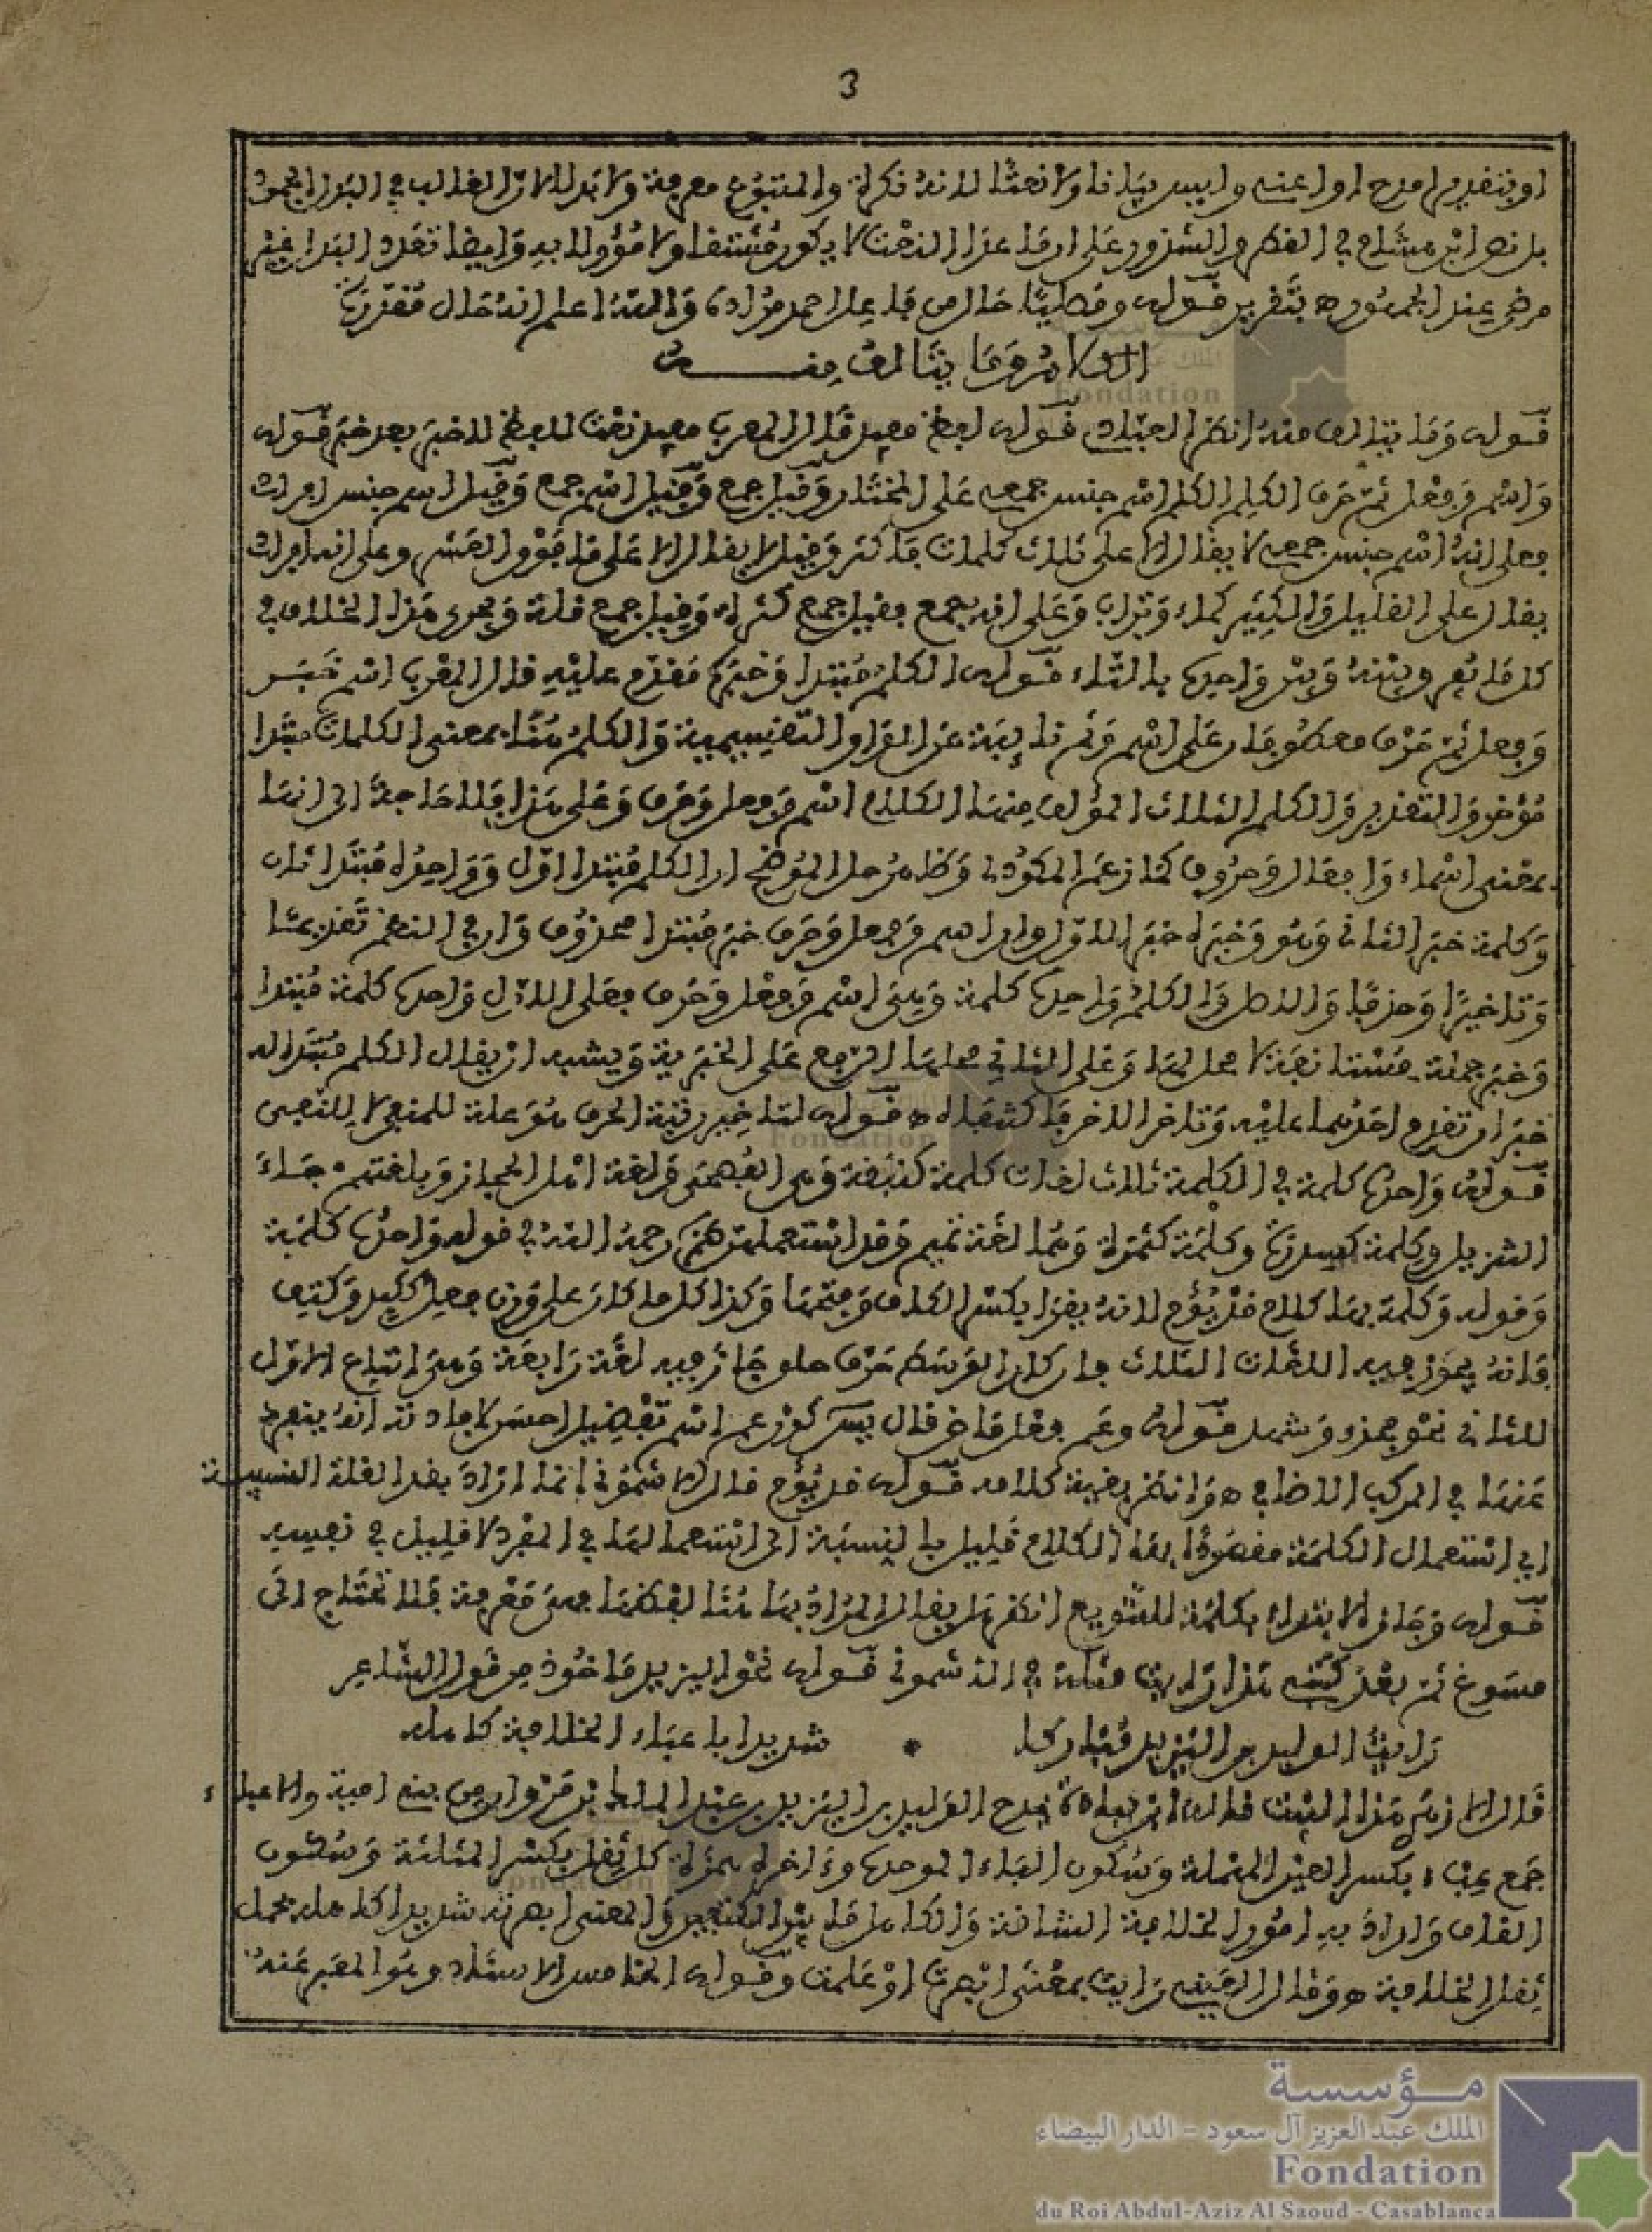 3
او بتقدير امدح او اعني وليس بيانا ولا نعتا لانه نكرة والمتبوع معرفة ولا بدلا لان الغالب في البدل الجمود
بل نص ابن هشام في القطر والشذور على ان ما عدا النعت لا يكون مشتقا ولا مؤولا به وايضا تعدد البدل غير
مرضي عند الجمهور ه بتقرير قوله ومصليا حال من فاعل احمد والله اعلم انه حال مقدرة
الكلام وما يتالف منه
قوله وما يتالف منه انظر قوله لفظ مفيد قال المعرب مفيد نعت للفظ لا خبر بعد خبر قوله
واسم وفعل ثم حرف الكلم الكلم اسم جنس جمعي على المختار وقيل جمع وقيل اسم جمع وقيل اسم جنس افرادي
فعلى انه اسم جنس جمعي لا يقال الا على ثلاث كلمات فاكثر وقيل لا يقال الا على ما فوق العشر وعلى انه افرادي
يقال على القليل والكثير كماء وتراب وعلى انه جمع فقيل جمع كثرة وقيل جمع قلة ويجري هذا الخلاف في
كل ما يفرق بينه وبين واحده بالتاء قوله الكلم مبتدا وخبره مقدم عليه قال المعرب اسم خبر
وفعل ثم حرف معطوفان على اسم وثم نائبة عن الواو التقسيمية والكلم هنا بمعنى الكلمات مبتدا
مؤخر والتقدير والكلم الثلاث المؤلف منها الكلام اسم وفعل وحرف وعلى هذا فلا حاجة الى انها
بمعنى اسماء وافعال وحروف كما زعم المكودي وظاهر حل الموضح ان الكلم مبتدا اول وواحده مبتدا ثان
وكلمة خبر الثاني وهو وخبره خبر الاول وان اسم وفعل وحرف خبر مبتدا محذوف وان في النظم تقديما
وتاخيرا وحذفا والاصل والكلم واحده كلمة وهي اسم وفعل وحرف فعلى الاول واحده كلمة مبتدا
وخبر جملة مستانفة لا محل لها وعلى الثاني محلها الرفع على الخبرية ويشبه ان يقال الكلم مبتدا له
خبران تقدم احدهما عليه وتاخر الاخر فاكتنفاه ه قوله لتاخير رتبة الحرف هو علة للمنفي لا للنفي
قوله واحده كلمة في الكلمة ثلاث لغات كلمة كنبقة وهي الفصحى ولغة اهل الحجاز وبلغتهم جاء
التنزيل وكلمة كسدرة وكلمة كتمرة وهما لغة تميم وقد استعملهن رحمه الله في قوله واحده كلمة
وقوله وكلمة بها كلام قد يؤم لانه يقرا بكسر الكاف وفتحها وكذا كل ما كان على وزن فعل ككبد وكتف
فانه يجوز فيه اللغات الثلاث فان كان الوسط حرف حلق جاز فيه لغة رابعة وهي اتباع الاول
للثاني نحو فخذ وشهد قوله وعم فعل ماض قال يس كون عم اسم تفضيل احسن
عنها في المركب الاضافي ه وانظر بقية كلامه قوله قد يؤم قال الاشموني انما اراد بقد القلة النسبية
اي استعمال الكلمة مقصودا بها الكلام قليل بالنسبة الى استعمالها في المفرد لا قليل في نفسه
قوله وجاز الابتداء بكلمة للتنويع انظر هل يقال المراد بها هنا لفظها فهي معرفة فلا تحتاج الى
مسوغ ثم بعد كتبي هذا رايت مثله في الاشموني قوله نحو اليزيد ماخوذ من قول الشاعر
رايت الوليد بن اليزيد مباركا * شديدا باعباء الخلافة كاهله
قال الازهري هذا البيت قاله ابن ميادة يمدح الوليد بن اليزيد بن عبد الملك بن مروان من بني امية والاعباء
جمع عبء بكسر العين المهملة وسكون الباء الموحدة وءاخره همزة كل ثقل بكسر المثلثة وسكون
القاف واراد به امور الخلافة الشاقة والكاهل ما بين الكتفين والمعنى ابصرته شديدا كاهله بحمل
ثقل الخلافة ه وقال العيني رايت بمعنى ابصرت او علمت وقوله الخامس الاسناد وهو المعبر عنه
مؤسسة
الملك عبد العزيز آل سعود - الدار البيضاء
Fondation
du Roi Abdul-Aziz Al Saoud - Casablanca